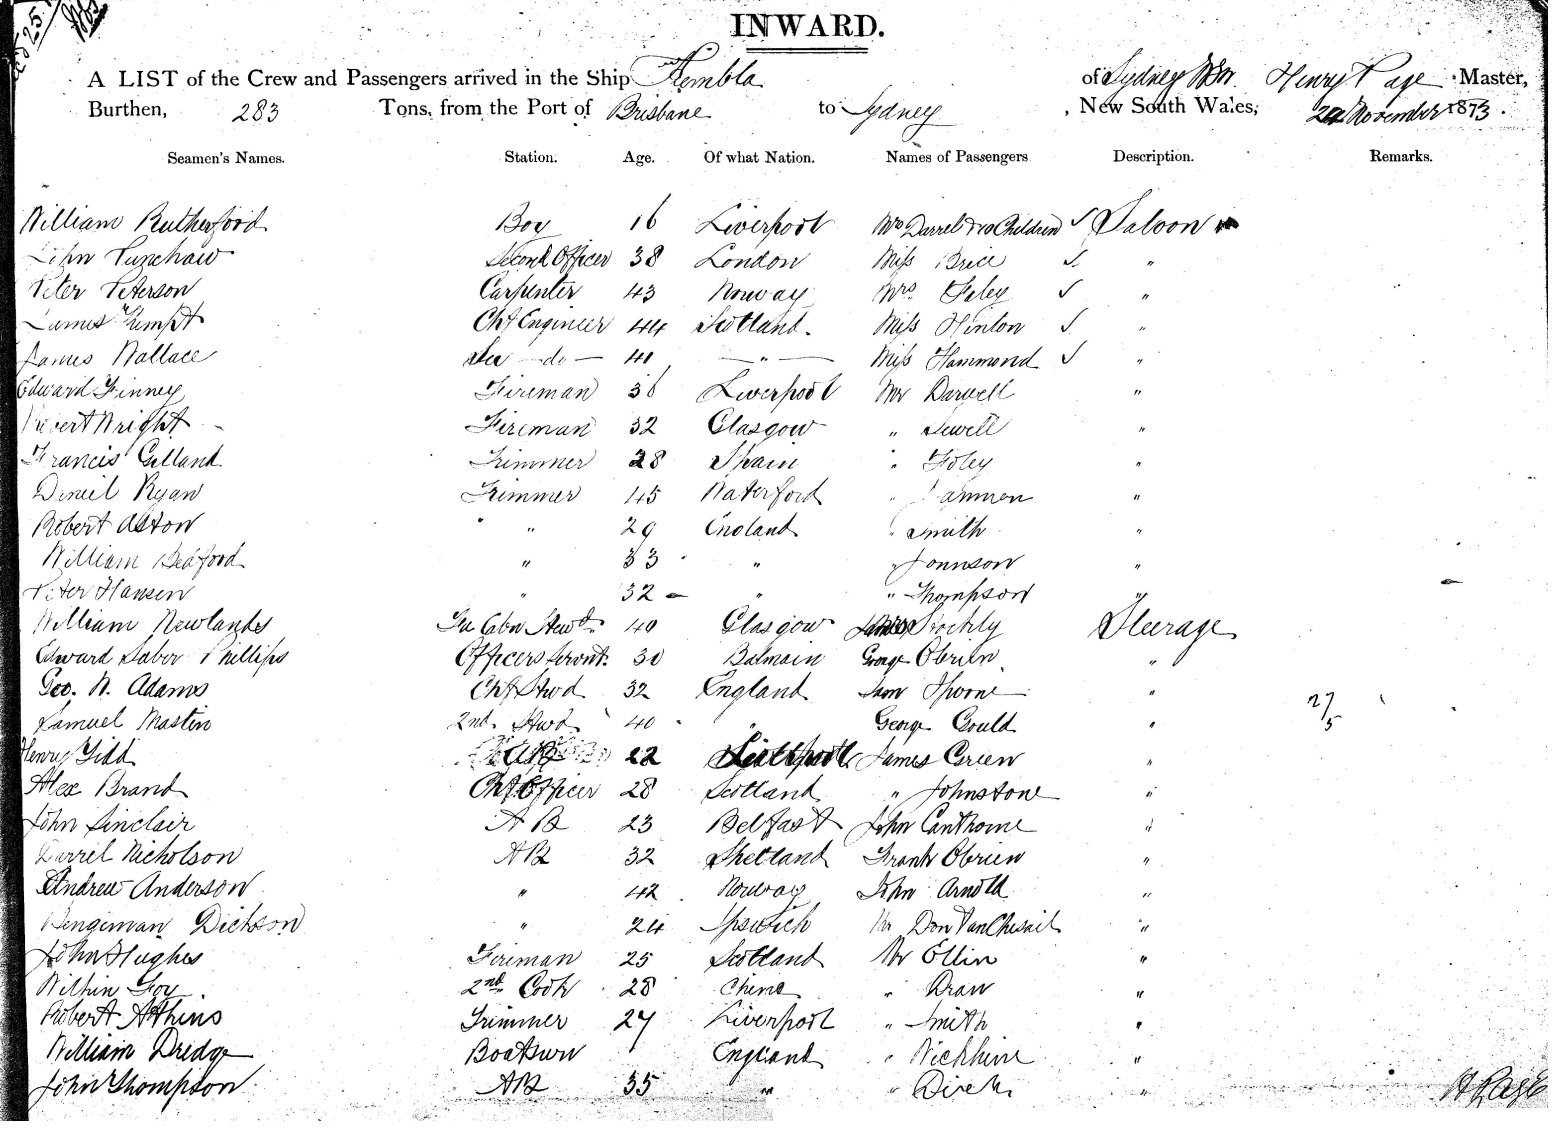 INWARD.
A LIST of the Crew and Passengers arrived in the Ship Kembla of Sydney NSW. Henry Page Master,
Burthen, 283 Tons, from the Port of Brisbane to Sydney, New South Wales, 24 November 1873.
Seamen's Names. Station. Age. Of what Nation. Names of Passengers Description. Remarks.
William Rutherford Boy 16 Liverpool Mrs Darrel & two Children ✓ Saloon
John Second Officer 38 London Miss Brice ✓ "
Peter Peterson Carpenter 43 Norway Mrs Foley ✓ "
James Kempt Chf Engineer 44 Scotland. Miss Hinton ✓ "
James Wallace Sec — do — 41 — " — Miss Hammond ✓ "
Edward Finney Fireman 36 Liverpool Mr Darvell "
Robert Wright Fireman 32 Glasgow " Sewell "
Francis Gelland Trimmer 28 Spain " Foley "
Daniel Ryan Trimmer 45 Waterford " "
Robert Aston " 29 England " Smith "
William Bedford " 33 " " Johnson "
Peter Hansen " 32 " " Thompson "
William Newlands Cabn Stewd 40 Glasgow James Steerage
Edward Saber Phillips Officers Servnt. 30 Balmain George Obrien "
Geo. N. Adams Chf Stwd 32 England Sam Thorne "
Samuel Mastin 2nd Stwd 40 " George Gould " 27/5
Henry Tidd AB 22 Liverpool James Green "
Alex Brand Chf Officer 28 Scotland " Johnstone "
John Sinclair AB 23 Belfast John Canthorne "
Darrel Nicholson AB 32 Shetland Frank Obrien "
Andrew Anderson " 42 Norway John Arnold "
Bengiman Dickson " 24 Ipswich Mr Don Van "
John Hughes Fireman 25 Scotland Mr Ellin "
Foy 2nd Cook 28 China " "
Robert Atkins Trimmer 27 Liverpool " Smith "
William Dredge Boatswn England " "
John Thompson AB 35 " " "
H Page